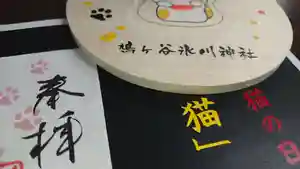 鳩ヶ谷氷川神社
奉拝
猫の日
猫」